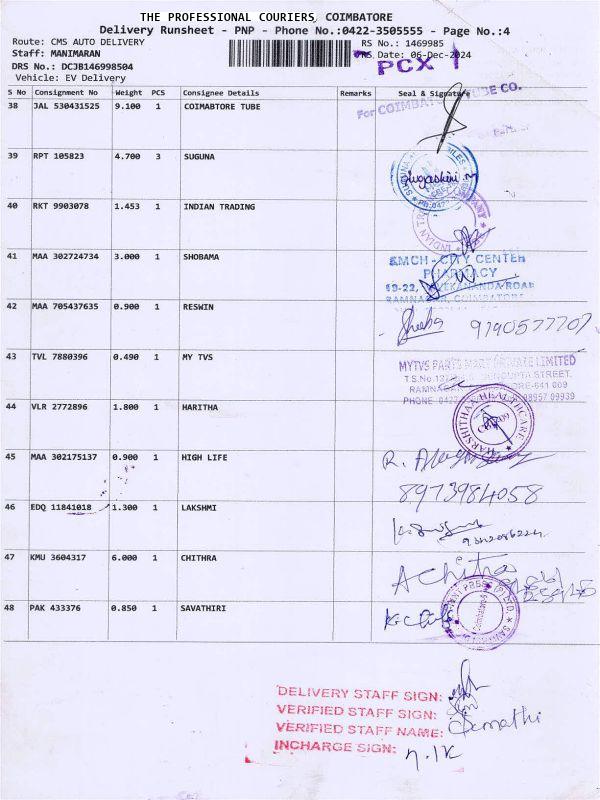 THE PROFESSIONAL COURIERS, COIMBATORE
Delivery Runsheet - PNP - Phone No.:0422-3505555 - Page No.:4
Route: CMS AUTO DELIVERY RS No.: 1469985
Staff: MANIMARAN DRS Date: 06-Dec-2024
DRS No.: DCJB146998504 PCX 1
Vehicle: EV Delivery
S No Consignment No Weight PCS Consignee Details Remarks Seal & Signature
38 JAL 530431525 9.100 1 COIMABTORE TUBE
For COIMBATORE TUBE CO.
39 RPT 105823 4.700 3 SUGUNA
40 RKT 9903078 1.453 1 INDIAN TRADING
INDIAN TRADING COMPANY
41 MAA 302724734 3.000 1 SHOBAMA
&MCH - CITY CENTER
PHARMACY
19-22, VIVEKANANDA ROAD
RAMNAGAR, COIMBATORE
42 MAA 705437635 0.900 1 RESWIN
Sheeba 9790577707
43 TVL 7880396 0.490 1 MY TVS
MYTVS PARTS MART PRIVATE LIMITED
STREET,
641 009
PHONE 0422 08957 09939
44 VLR 2772896 1.800 1 HARITHA
HARSHITHA HEALTHCARE
45 MAA 302175137 0.900 1 HIGH LIFE
8973984058
46 EDQ 11841018 1.300 1 LAKSHMI
47 KMU 3604317 6.000 1 CHITHRA
A Chitra
48 PAK 433376 0.850 1 SAVATHIRI
DELIVERY STAFF SIGN:
VERIFIED STAFF SIGN:
VERIFIED STAFF NAME:
INCHARGE SIGN: